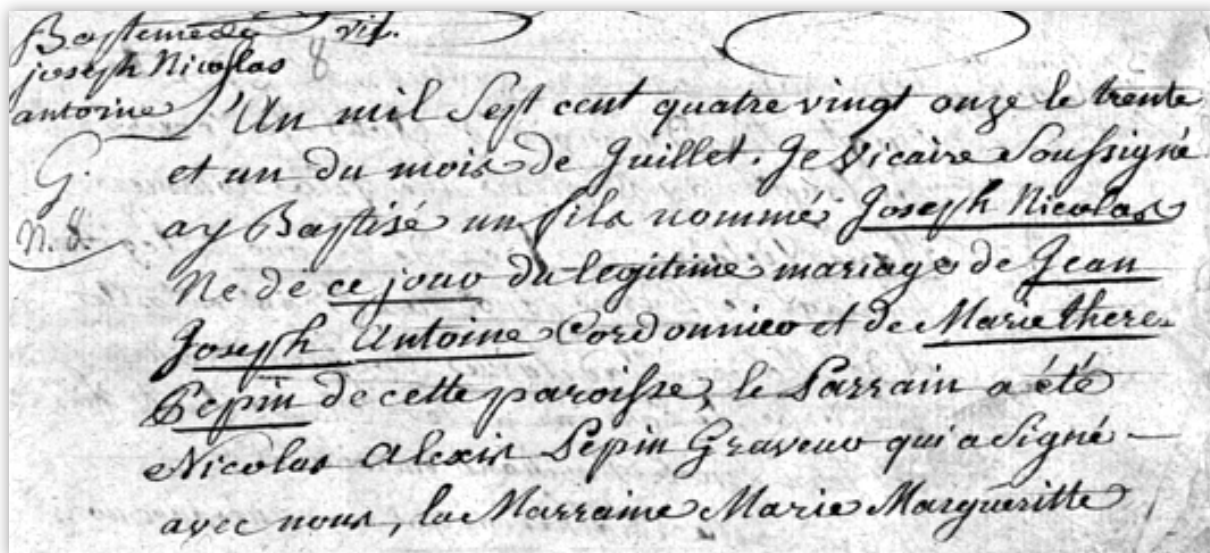 Bapteme de
joseph Nicolas 8
antoine
G.
n. 8.
L'an mil Sept cent quatre vingt onze le trente
et un du mois de Juillet. Je Vicaire Soussigné
ay Baptisé un fils nommé Joseph Nicolas
Ne de ce jour du legitime mariage de Jean
Joseph Antoine Cordonnier et de Marie there
Pepin de cette paroisse, le Parrain a été
Nicolas Alexis Pepin Graveur qui a Signé —
avec nous, la Marraine Marie Margueritte